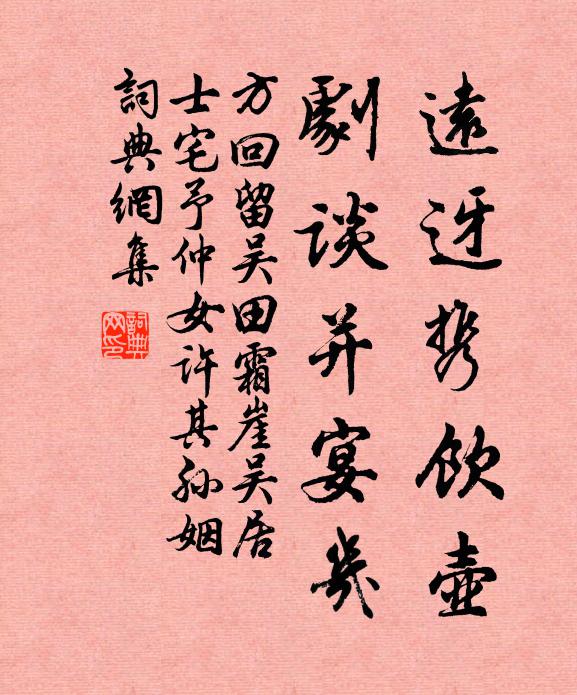 遠迓携飲壺
劇談并宴幾
方回留吴田霜崖吴居
士宅予仲女许其孙姻
詞典網集
詞典網印